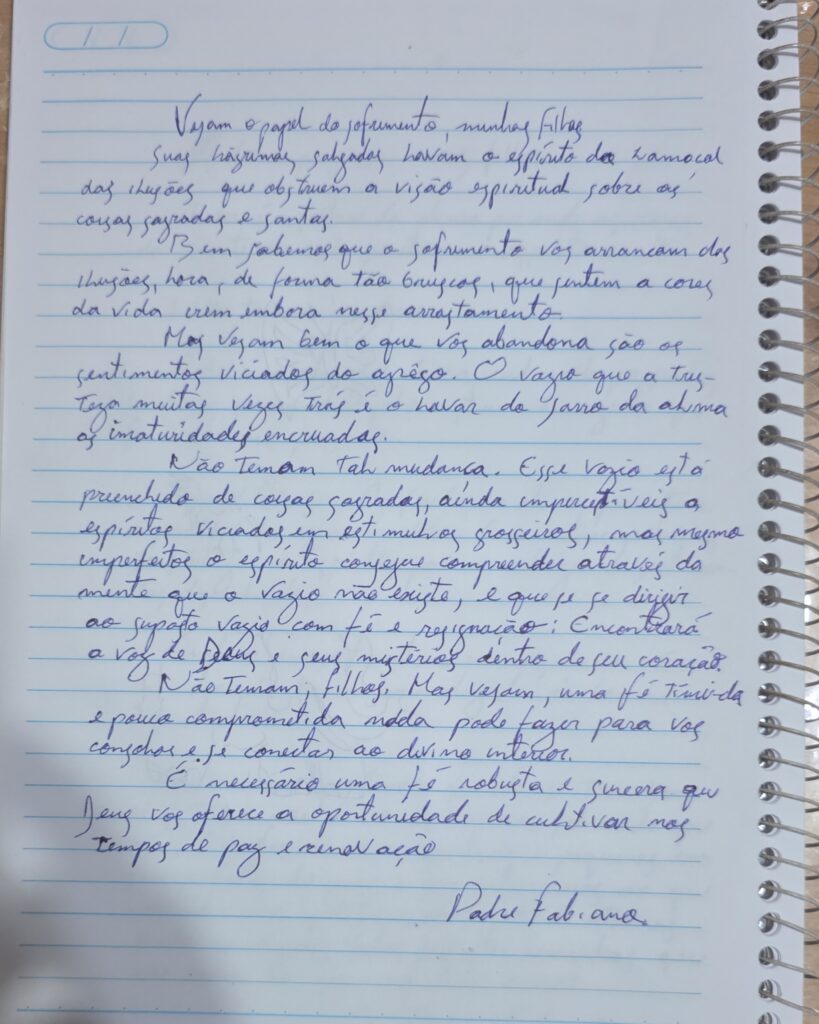 / /
Vejam o papel do sofrimento, minhos filhos
Suas lágrimas salgadas lavam o espírito do lamaçal
das ilusões que obstruem a visão espiritual sobre as
coisas sagradas e santas.
Bem sabemos que o sofrimento vos arrancam das
ilusões, hora, de forma tão bruscos, que sentem a cores
da vida irem embora nesse arrastamento.
Mas vejam bem o que vos abandona são os
sentimentos viciados do apêgo. O vazio que a tris-
teza muitas vezes trás é o lavar do jarro da alma
as imaturidades encruadas.
Não temam tal mudança. Esse vazio está
preenchido de coisas sagradas, ainda imperceptíveis a
espíritos viciados em estimulos grosseiros, mas mesmo
imperfeitos o espírito consegue compreender através da
mente que o vazio não existe, e que se se dirigir
ao suposto vazio com fé e resignação: Encontrará
a voz de Deus e seus mistérios dentro de seu coração.
Não temam, filhos. Mas vejam, uma fé tímida
e pouco comprometida nada pode fazer para vos
consolos e se conectar ao divino interior.
É necessário uma fé robusta e sincera que
Deus vos oferece a oportunidade de cultivar nos
tempos de paz e renovação
Padre Fabiano.